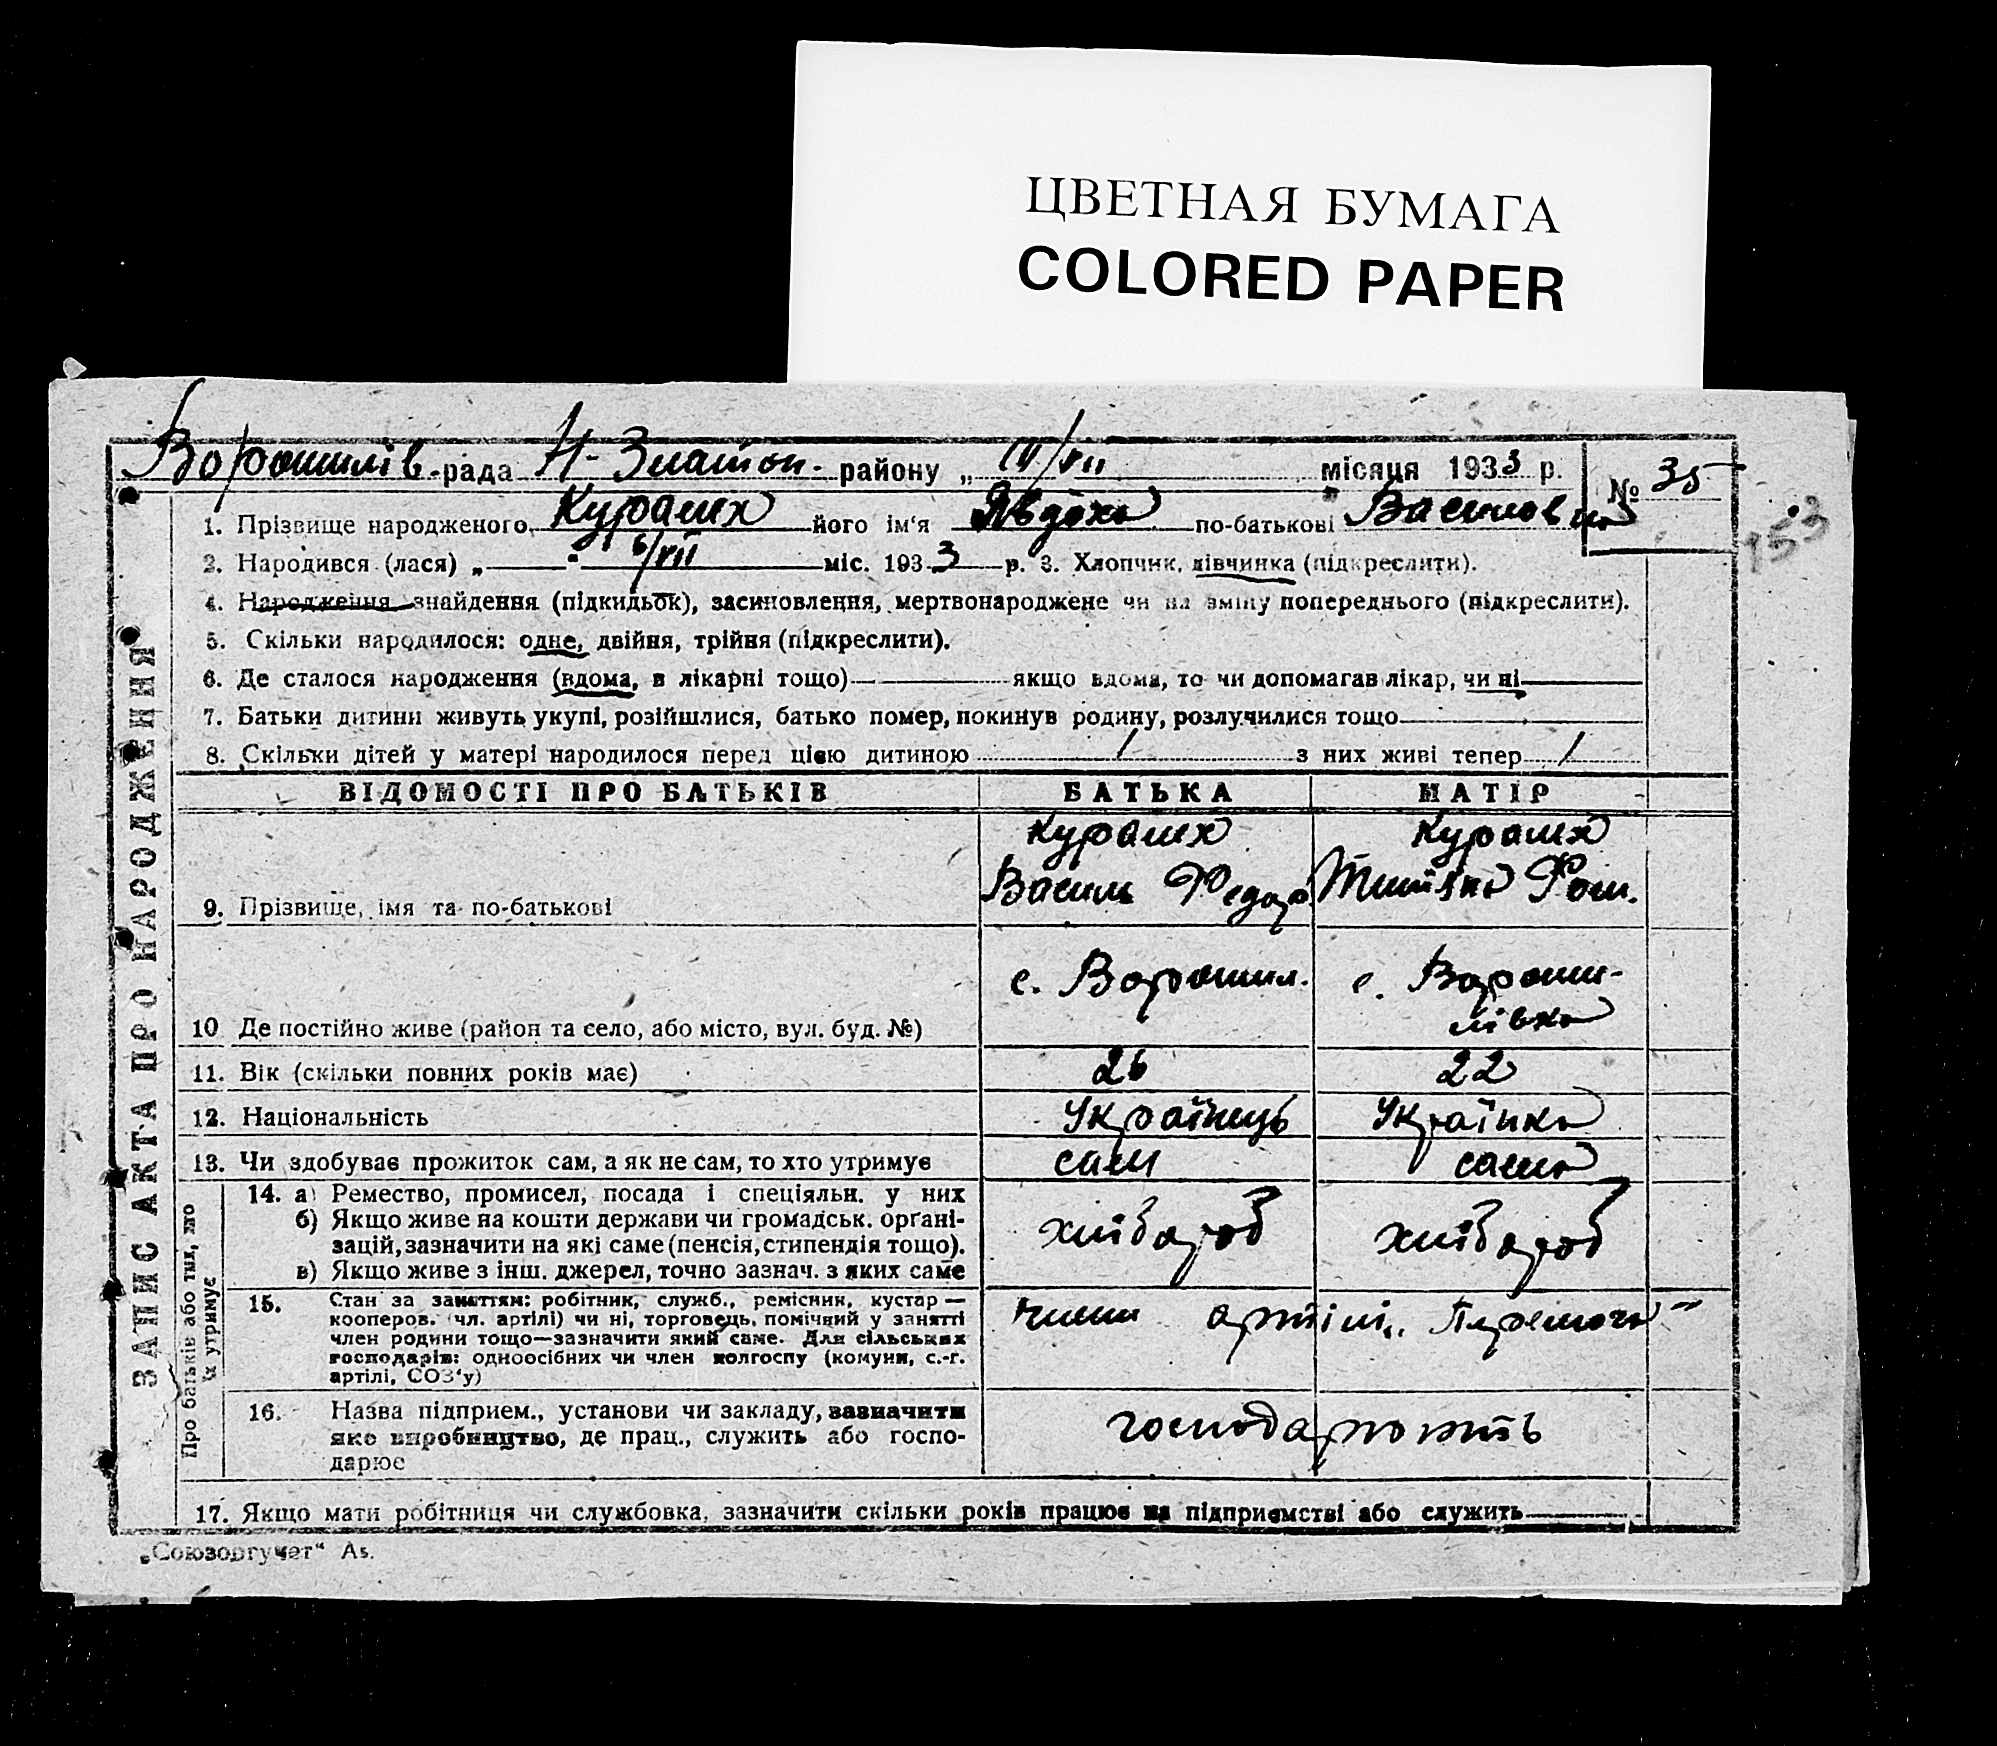 ЦВЕТНАЯ БУМАГА
COLORED PAPER
Ворошилів-рада Н-Златоп. району „ IV/VII місяця 1933 р.
№ 35
153
1. Прізвище народженого Курамх його ім'я Явдоха по-батькові Василовна
2. Народився (лася) „ 6/VII міс. 1933 р. 3. Хлопчик, дівчинка (підкреслити).
4. Народження, знайдення (підкидьок), засиновлення, мертвонароджене чи на зміну попереднього (підкреслити).
5. Скільки народилося: одне, двійня, трійня (підкреслити).
6. Де сталося народження (вдома, в лікарні тощо) якщо вдома, то чи допомагав лікар, чи ні
7. Батьки дитини живуть укупі, розійшлися, батько помер, покинув родину, розлучилися тощо
8. Скільки дітей у матері народилося перед цією дитиною 1 з них живі тепер 1
ЗАПИС АКТА ПРО НАРОДЖЕННЯ
ВІДОМОСТІ ПРО БАТЬКІВ БАТЬКА МАТІР
Курамх Курамх
9. Прізвище, імя та по-батькові Василь Федор
с. Ворошил. с. Вороши-
лівка
10 Де постійно живе (район та село, або місто, вул. буд. №)
11. Вік (скільки повних років має) 26 22
12. Національність Українець Українка
13. Чи здобуває прожиток сам, а як не сам, то хто утримує сам сама
Про батьків або тих, хто їх утримує
14. а) Ремество, промисел, посада і спеціяльн. у них
б) Якщо живе на кошти держави чи громадськ. орґані-
зацій, зазначити на які саме (пенсія, стипендія тощо).
в) Якщо живе з інш. джерел, точно зазнач. з яких саме
хлібороб хлібороб
15. Стан за заняттям: робітник, служб., ремісник, кустар —
кооперов. (чл. артілі) чи ні, торговець, помічний у занятті
член родини тощо—зазначити який саме. Для сільських
господарів: одноосібних чи член колгоспу (комуни, с.-г.
артілі, СОЗ'у)
члени артілі „Перемога"
16. Назва підприем., установи чи закладу, зазначити
яке виробництво, де прац., служить або госпо-
дарює
господарюють
17. Якщо мати робітниця чи службовка, зазначити скільки років працює на підприємстві або служить
„Союзоргучет" А5.